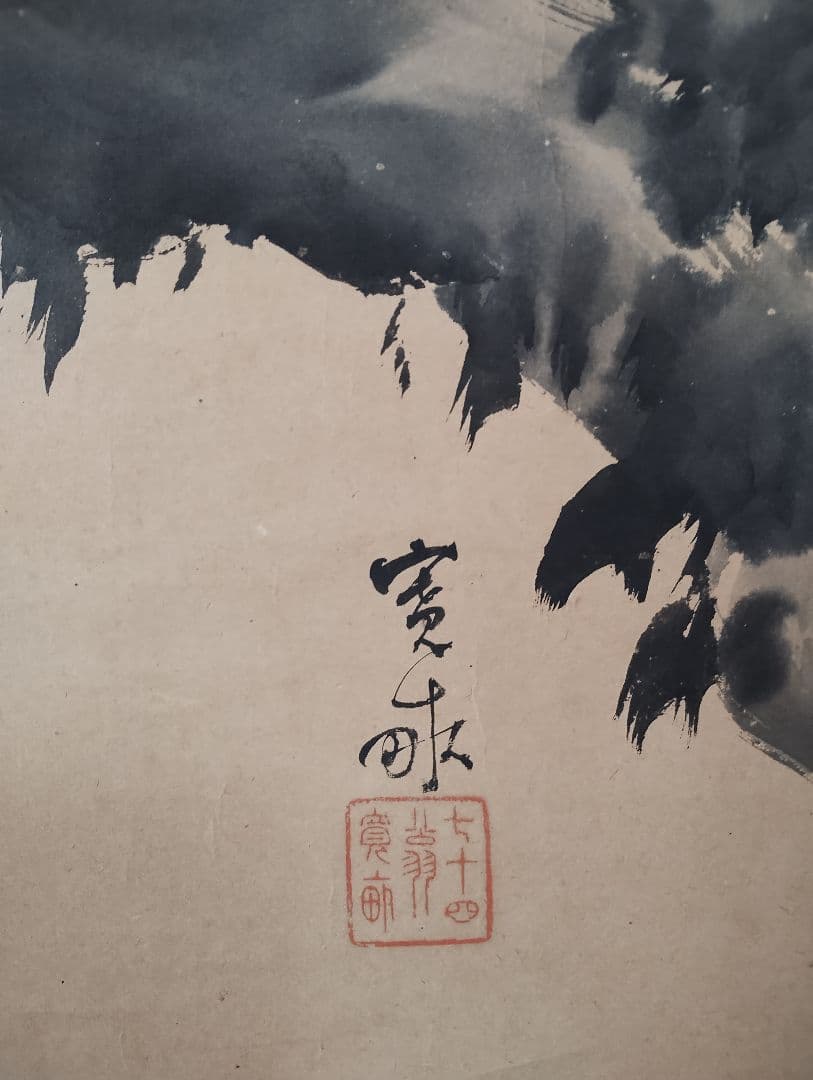 寛畝
七十四
翁
寛畝